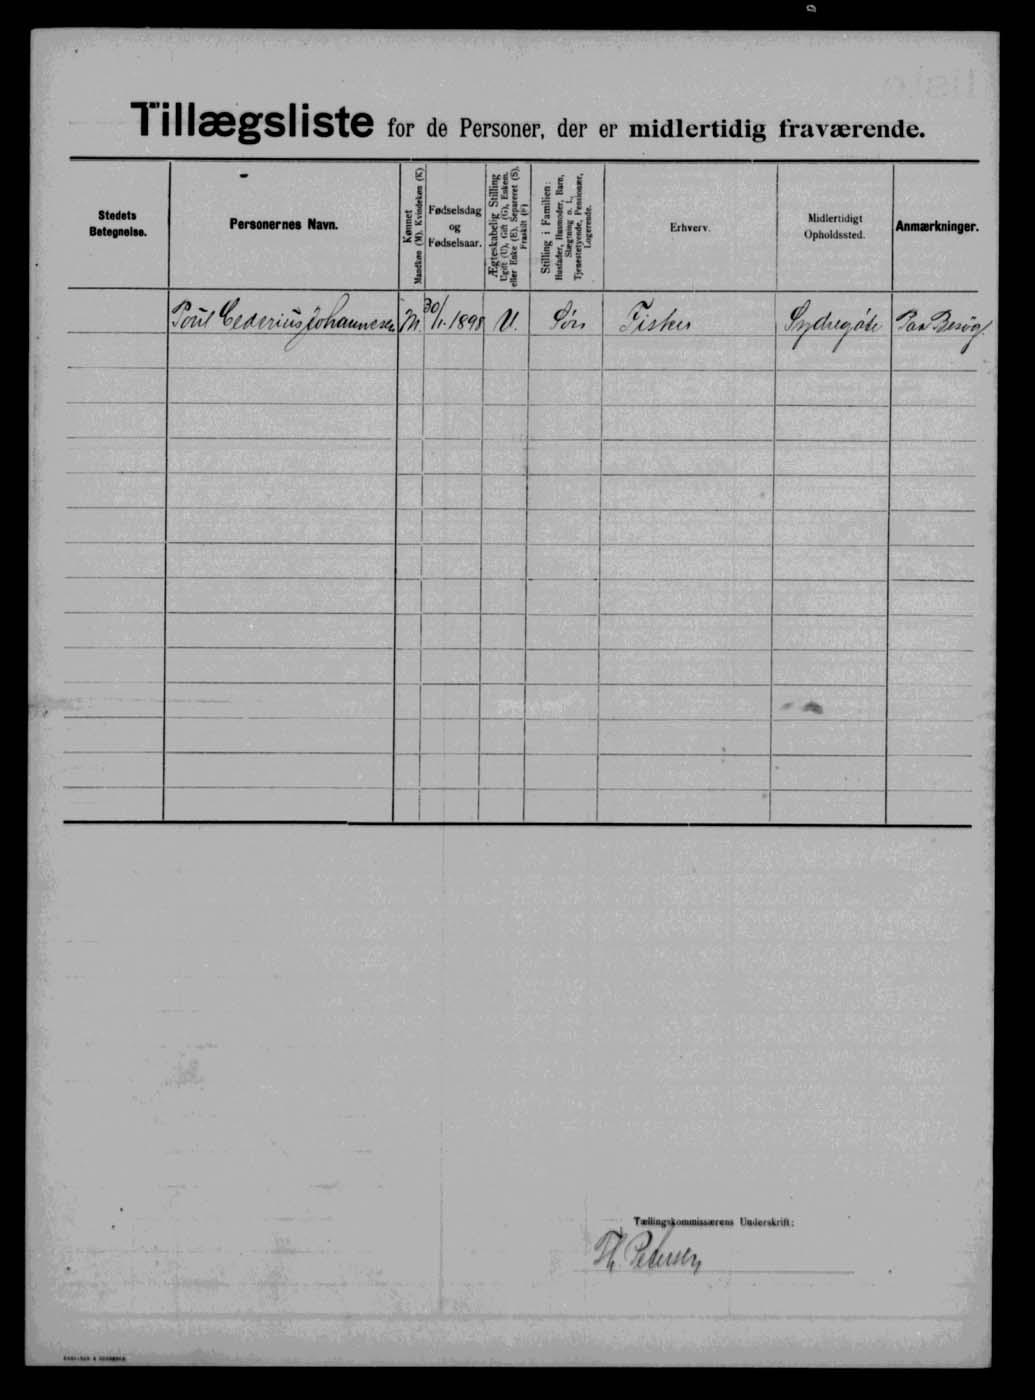 Tillægsliste for de Personer, der er midlertidig fraværende.
Stedets Betegnelse.
Personernes Navn.
Kønnet Mandkøn (M). Kvindekøn (K)
Fødselsdag og Fødselsaar.
Ægteskabelig Stilling Ugift (U), Gift (G), Enkem. eller Enke (E), Separeret (S), Fraskilt (F)
Stilling i Familien: Husfader, Husmoder, Barn, Slægtning o. l., Tjenestetyende, Pensionær, Logerende.
Erhverv.
Midlertidigt Opholdssted.
Anmærkninger.
Poul Cederius Johannesen M. 30/1. 1898 U. Søn Fisker Sydregøte Paa Besøg.
Tællingskommissærens Underskrift:
Th. Petersen